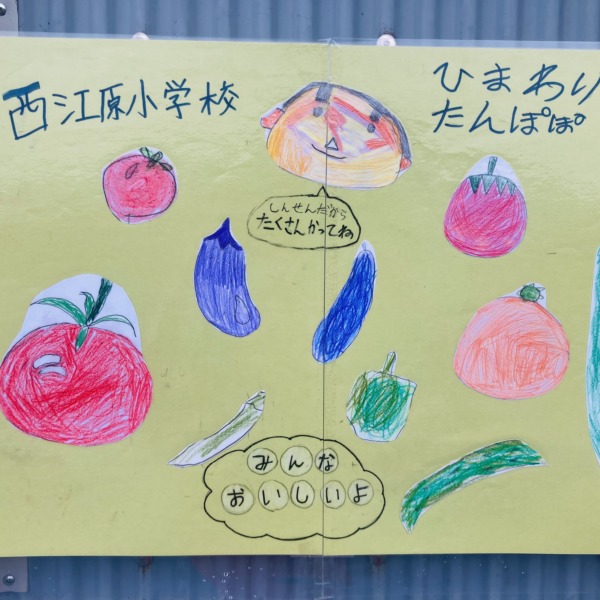 西江原小学校
ひまわり
たんぽぽ
しんせんだから
たくさんかってね
みんな
おいしいよ